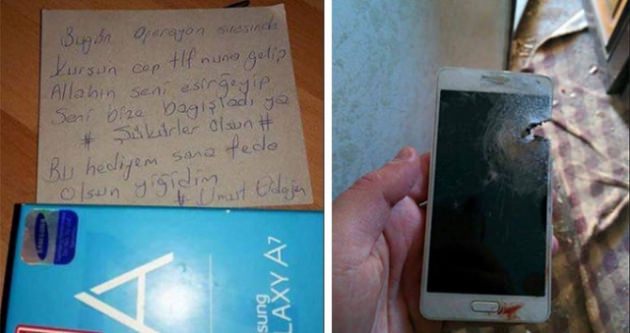 Bugün operasyon sırasında
Kurşun cep tlf nuna gelip
Allahın seni esirgeyip
Seni bize bağışladı ya
# Şükürler Olsun #
Bu hediyem sana feda
Olsun yiğidim
# Umut
SAMSUNG
A
sung
LAXY A7